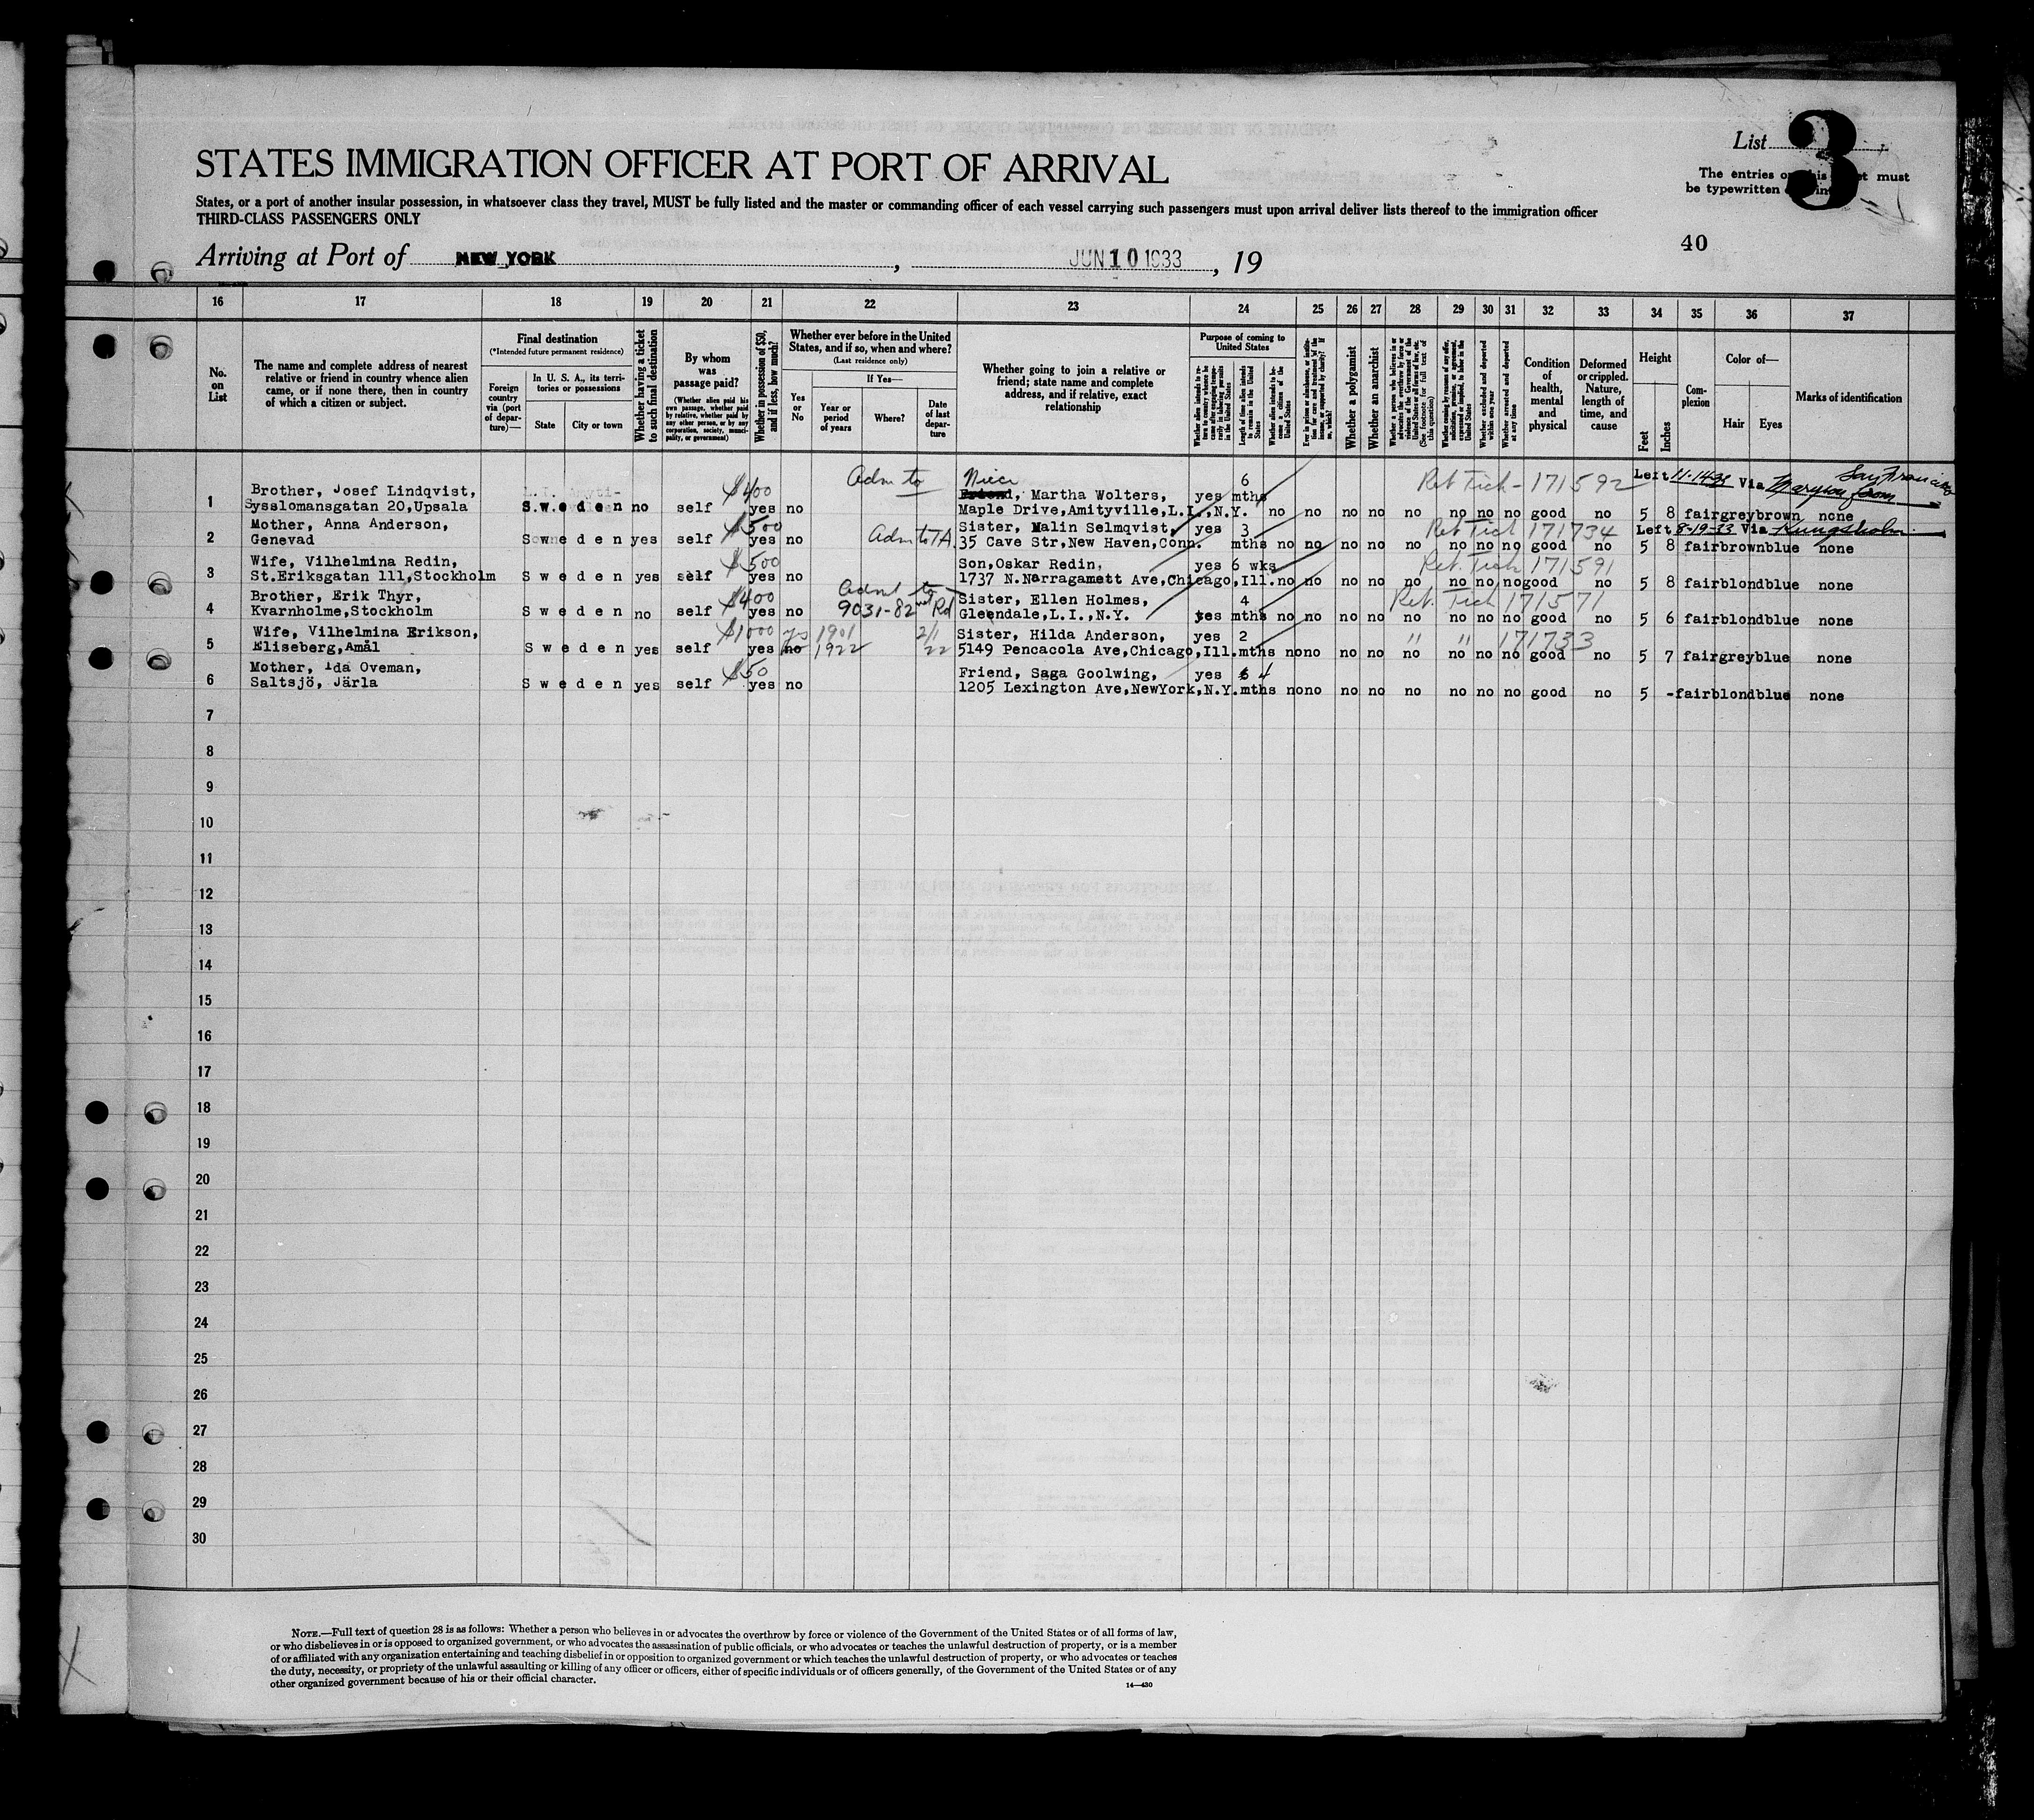 List 3
STATES IMMIGRATION OFFICER AT PORT OF ARRIVAL
The entries on this sheet must
be typewritten or printed
States, or a port of another insular possession, in whatsoever class they travel, MUST be fully listed and the master or commanding officer of each vessel carrying such passengers must upon arrival deliver lists thereof to the immigration officer
THIRD-CLASS PASSENGERS ONLY
40
Arriving at Port of NEW YORK, JUN 10 1933, 19
16 17 18 19 20 21 22 23 24 25 26 27 28 29 30 31 32 33 34 35 36 37
No. on List
The name and complete address of nearest
relative or friend in country whence alien
came, or if none there, then in country
of which a citizen or subject.
Final destination
(*Intended future permanent residence)
Foreign country via (port of departure)—
In U. S. A., its territories or possessions
State
City or town
Whether having a ticket to such final destination
By whom was passage paid?
(Whether alien paid his own passage, whether paid by relative, whether paid by any other person, or by any corporation, society, municipality, or government)
Whether in possession of $50, and if less, how much?
Whether ever before in the United
States, and if so, when and where?
(Last residence only)
Yes or No
If Yes—
Year or period of years
Where?
Date of last departure
Whether going to join a relative or
friend; state name and complete
address, and if relative, exact
relationship
Purpose of coming to United States
Whether alien intends to return to country whence he came after engaging temporarily in laboring pursuits in the United States
Length of time alien intends to remain in the United States
Whether alien intends to become a citizen of the United States
Ever in prison or almshouse, or institution for care and treatment of the insane, or supported by charity? If so, which?
Whether a polygamist
Whether an anarchist
Whether a person who believes in or advocates the overthrow by force or violence of the Government of the United States or all forms of law, etc. (See footnote for full text of this question)
Whether coming by reason of any offer, solicitation, promise, or agreement, expressed or implied, to labor in the United States
Whether excluded and deported within one year
Whether arrested and deported at any time
Condition of health, mental and physical
Deformed or crippled. Nature, length of time, and cause
Height
Feet
Inches
Complexion
Color of—
Hair
Eyes
Marks of identification
$400 Adm to Niece 6 Ret Tick - 171592 Left 11-14-33 Via from San Francisco
1 Brother, Josef Lindqvist, Friend, Martha Wolters, yes mths
Sysslomansgatan 20, Upsala S.w.e d e n no self yes no Maple Drive, Amityville, L.I., N.Y. no no no no no no no no good no 5 8 fair grey brown none
2 Mother, Anna Anderson, $500 Adm to TA Sister, Malin Selmqvist, yes 3 Ret Tick 171734 Left 8-19-33 Via Kungsholm
Genevad S w e d e n yes self yes no 35 Cave Str, New Haven, Conn. mths no no no no no no no no good no 5 8 fair brown blue none
3 Wife, Vilhelmina Redin, $500 Son, Oskar Redin, yes 6 wks Ret. Tick 171591
St. Eriksgatan 111, Stockholm S w e d e n yes self yes no 1737 N. Narragamett Ave, Chicago, Ill. no no no no no no no no good no 5 8 fair blond blue none
4 Brother, Erik Thyr, $400 Admt to Sister, Ellen Holmes, 4 Ret. Tick 171571
Kvarnholme, Stockholm S w e d e n no self yes no 9031-82 Rd Glendale, L.I., N.Y. yes mths no no no no no no no no good no 5 6 fair blond blue none
5 Wife, Vilhelmina Erikson, $1000 yes 1901 2/1 Sister, Hilda Anderson, yes 2 " " 171733
Eliseberg, Amål S w e d e n yes self yes no 1922 22 5149 Pencacola Ave, Chicago, Ill. mths no no no no no no no no good no 5 7 fair grey blue none
6 Mother, Ida Oveman, $50 Friend, Saga Goolwing, yes 6 4
Saltsjö, Järla S w e d e n yes self yes no 1205 Lexington Ave, NewYork, N.Y. mths no no no no no no no no good no 5 - fair blond blue none
7
8
9
10
11
12
13
14
15
16
17
18
19
20
21
22
23
24
25
26
27
28
29
30
NOTE.—Full text of question 28 is as follows: Whether a person who believes in or advocates the overthrow by force or violence of the Government of the United States or of all forms of law,
or who disbelieves in or is opposed to organized government, or who advocates the assassination of public officials, or who advocates or teaches the unlawful destruction of property, or is a member
of or affiliated with any organization entertaining and teaching disbelief in or opposition to organized government or which teaches the unlawful destruction of property, or who advocates or teaches
the duty, necessity, or propriety of the unlawful assaulting or killing of any officer or officers, either of specific individuals or of officers generally, of the Government of the United States or of any
other organized government because of his or their official character.
14—430